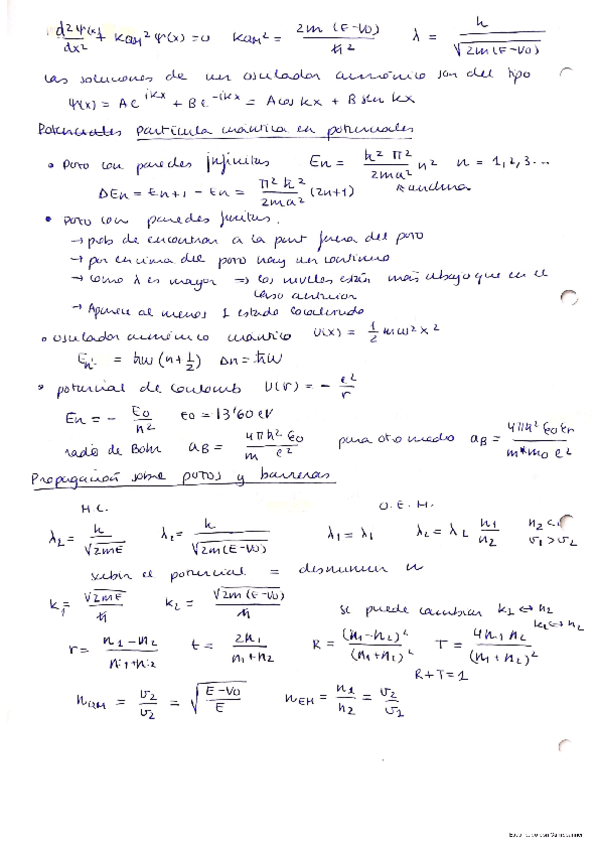 d²Ψ(x)/dx² + k_QM² Ψ(x) = 0   k_QM² = 2m (E-V0)/ħ²   λ = h/√(2m(E-V0))
Las soluciones de un oscilador armónico son del tipo
Ψ(x) = A e^(ikx) + B e^(-ikx) = A cos kx + B sen kx
Potenciales Partícula cuántica en potenciales
• Pozo con paredes infinitas   En = ħ² π²/2ma² n²   n = 1,2,3...
ΔEn = En+1 - En = π² ħ²/2ma² (2n+1)   anchura
• Pozo con paredes finitas.
→ prob de encontrar a la part fuera del pozo
→ por encima del pozo hay un continuo
→ como λ es mayor ⇒ los niveles están más abajo que en el
caso anterior
→ Aparece al menos 1 estado localizado
• oscilador armónico cuántico   U(x) = 1/2 mω² x²
En = ħω (n + 1/2)   Δn = ħω
• potencial de Coulomb   U(r) = - e²/r
En = - E0/n²   E0 = 13'60 eV
radio de Bohr   aB = 4πħ² ε0/m e²   para otro medio   aB = 4πħ² ε0 εr/m* m0 e²
Propagación sobre pozos y barreras
M.C.   O.E.M.
λ2 = h/√(2mE)   λ2 = h/√(2m(E-V0))   λ1 = λ1   λ2 = λ1 n1/n2   n2 <   v1 > v2
subir el potencial = disminuir n
k1 = √(2mE)/ħ   k2 = √(2m(E-V0))/ħ   se puede cambiar k2 ↔ n2
k1 ↔ n2
r = n1-n2/n1+n2   t = 2n1/n1+n2   R = (n1-n2)²/(n1+n2)²   T = 4n1 n2/(n1+n2)²
R+T=1
n_QM = v2/v2 = √(E-V0/E)   n_EM = n1/n2 = v2/v1